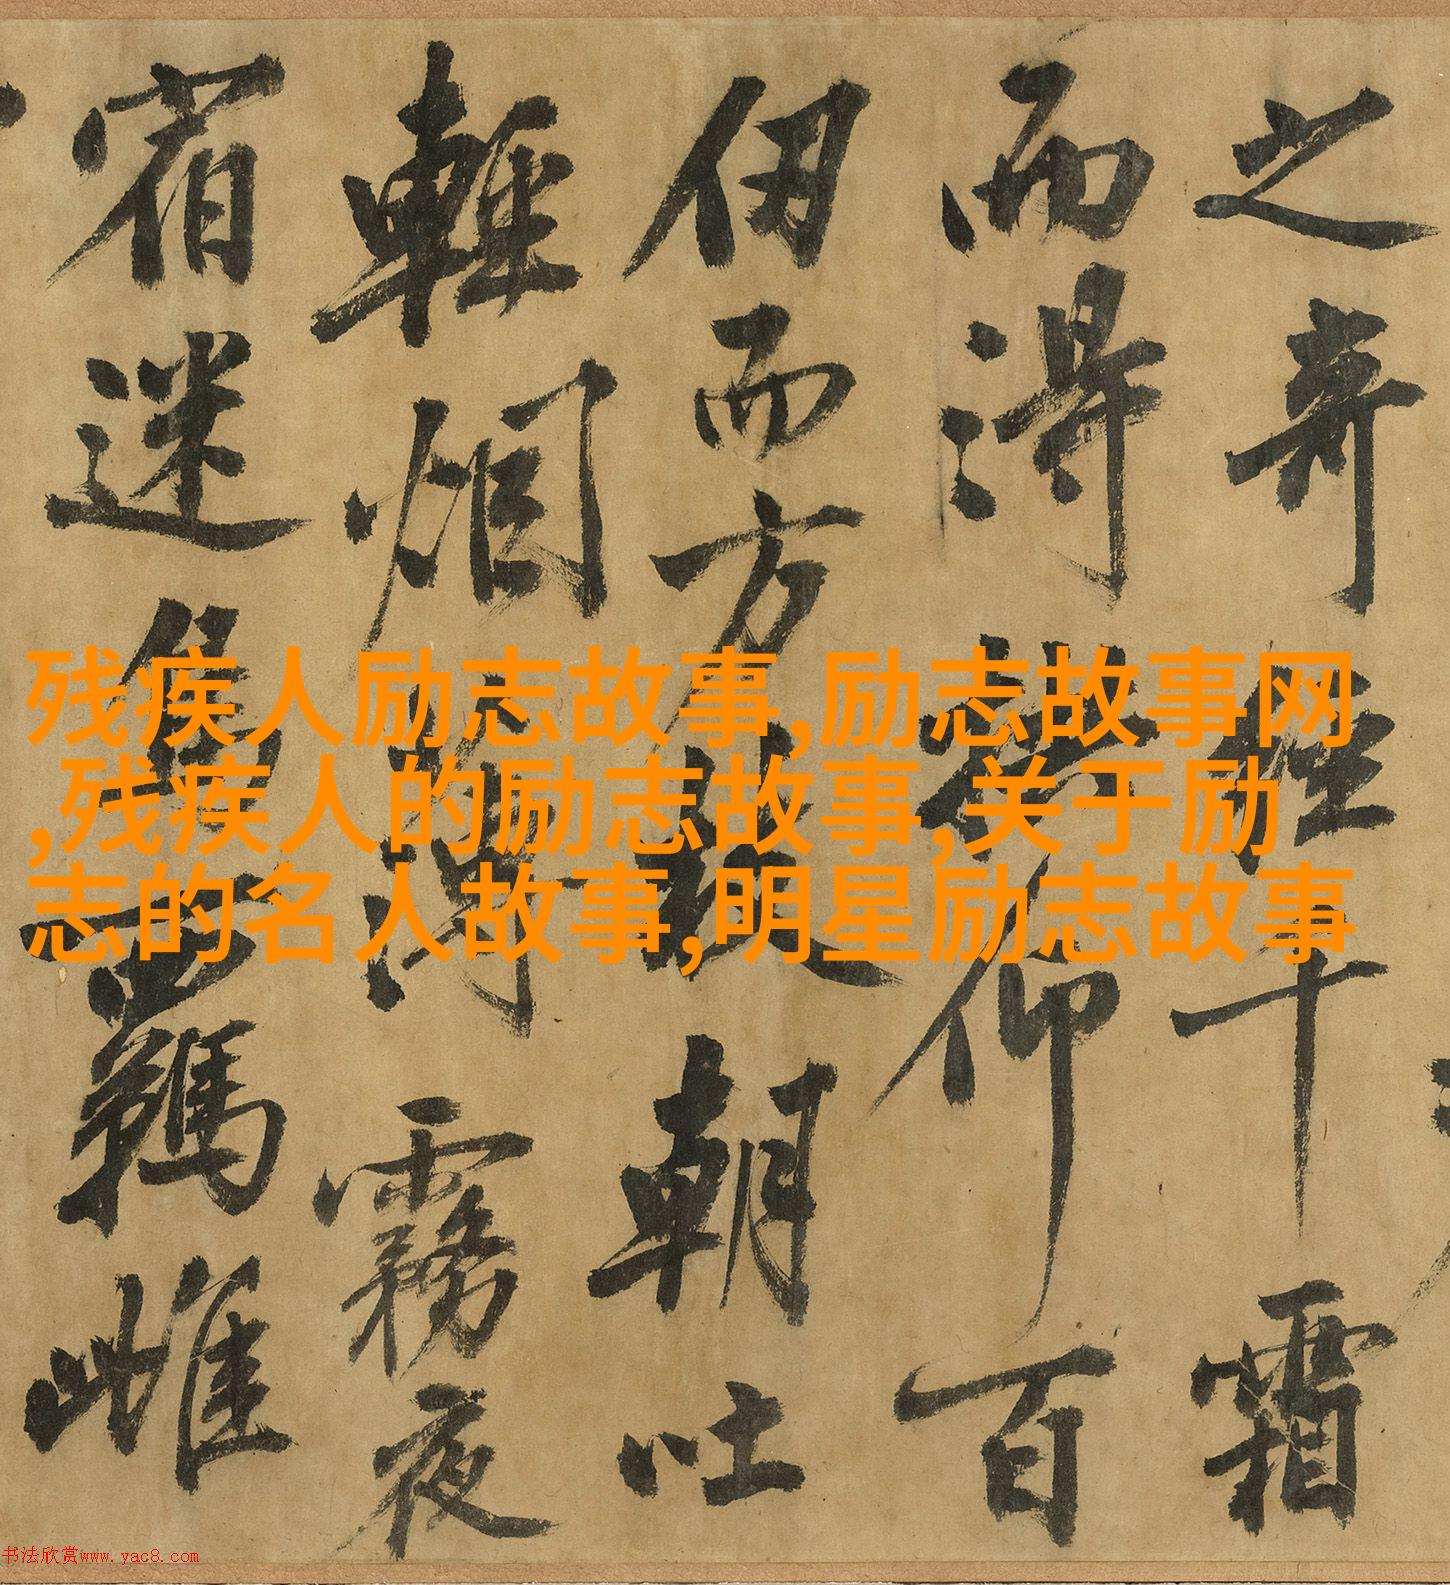 之奇經千霜
而得仰百
仞而方朝吐
輕烟霧夜
宿迷羈雌
残疾人励志故事,励志故事网
,残疾人的励志故事,关于励
志的名人故事,明星励志故事
书法欣赏www.yac8.com